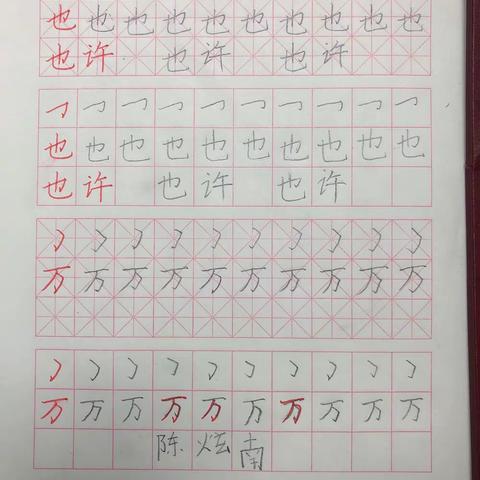 也 也 也 也 也 也 也 也 也 也
也 许 也 许 也 许
㇆ ㇆ ㇆ ㇆ ㇆ ㇆ ㇆ ㇆ ㇆ ㇆
也 也 也 也 也 也 也 也 也 也
也 许 也 许 也 许
㇆ ㇆ ㇆ ㇆ ㇆ ㇆ ㇆ ㇆ ㇆ ㇆
万 万 万 万 万 万 万 万 万 万
㇆ ㇆ ㇆ ㇆ ㇆ ㇆ ㇆ ㇆ ㇆ ㇆
万 万 万 万 万 万 万 万 万 万
陈 炫 南